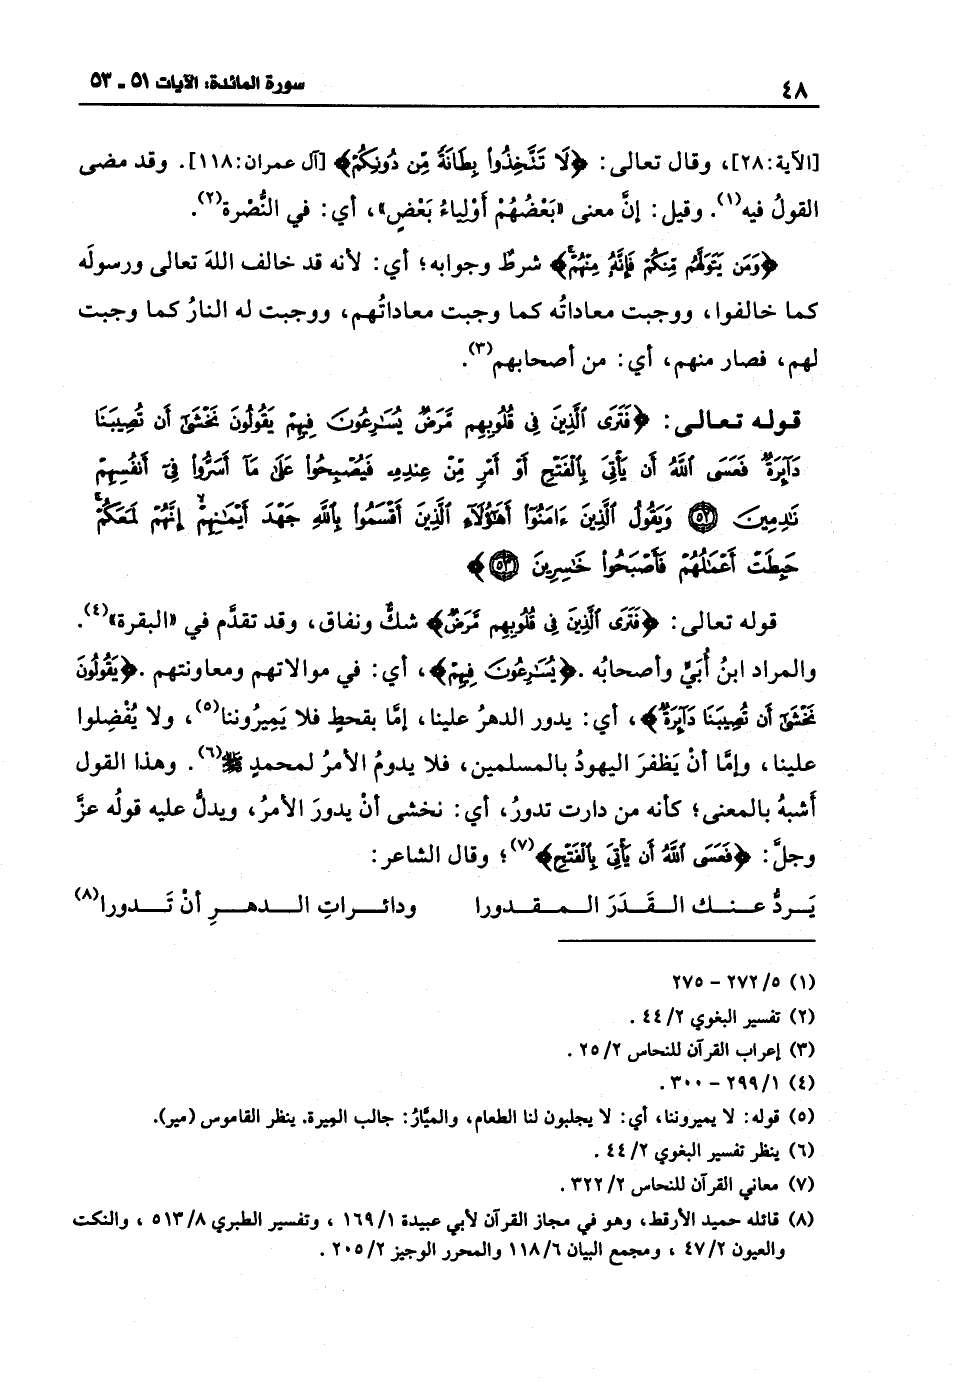 ٤٨ سورة المائدة: الآيات ٥١ ـ ٥٣
[الآية:٢٨]، وقال تعالى: ﴿لَا تَتَّخِذُوا۟ بِطَانَةً مِّن دُونِكُمْ﴾ [آل عمران:١١٨]. وقد مضى
القولُ فيه(١). وقيل: إنَّ معنى «بَعْضُهُمْ أَوْلِياءُ بَعْضٍ»، أي: في النُّصْرة(٢).
﴿وَمَن يَتَوَلَّهُم مِّنكُمْ فَإِنَّهُۥ مِنْهُمْ﴾ شرطٌ وجوابه؛ أي: لأنه قد خالف اللهَ تعالى ورسولَه
كما خالفوا، ووجبت معاداتُه كما وجبت معاداتُهم، ووجبت له النارُ كما وجبت
لهم، فصار منهم، أي: من أصحابهم(٣).
قوله تعالى: ﴿فَتَرَى ٱلَّذِينَ فِى قُلُوبِهِم مَّرَضٌ يُسَٰرِعُونَ فِيهِمْ يَقُولُونَ نَخْشَىٰٓ أَن تُصِيبَنَا
دَآئِرَةٌ فَعَسَى ٱللَّهُ أَن يَأْتِىَ بِٱلْفَتْحِ أَوْ أَمْرٍ مِّنْ عِندِهِۦ فَيُصْبِحُوا۟ عَلَىٰ مَآ أَسَرُّوا۟ فِىٓ أَنفُسِهِمْ
نَٰدِمِينَ ٥٢ وَيَقُولُ ٱلَّذِينَ ءَامَنُوٓا۟ أَهَٰٓؤُلَآءِ ٱلَّذِينَ أَقْسَمُوا۟ بِٱللَّهِ جَهْدَ أَيْمَٰنِهِمْ إِنَّهُمْ لَمَعَكُمْ
حَبِطَتْ أَعْمَٰلُهُمْ فَأَصْبَحُوا۟ خَٰسِرِينَ ٥٣﴾
قوله تعالى: ﴿فَتَرَى ٱلَّذِينَ فِى قُلُوبِهِم مَّرَضٌ﴾ شكٌّ ونفاق، وقد تقدَّم في «البقرة»(٤).
والمراد ابنُ أُبَيٍّ وأصحابُه. ﴿يُسَٰرِعُونَ فِيهِمْ﴾، أي: في موالاتهم ومعاونتهم. ﴿يَقُولُونَ
نَخْشَىٰٓ أَن تُصِيبَنَا دَآئِرَةٌ﴾، أي: يدور الدهرُ علينا، إمَّا بقحطٍ فلا يَمِيرُوننا(٥)، ولا يُفْضِلوا
علينا، وإمَّا أنْ يَظفرَ اليهودُ بالمسلمين، فلا يدومُ الأمرُ لمحمدٍ ﷺ(٦). وهذا القول
أشبهُ بالمعنى؛ كأنه من دارت تدورُ، أي: نخشى أنْ يدورَ الأمرُ، ويدلُّ عليه قولُه عزَّ
وجلَّ: ﴿فَعَسَى ٱللَّهُ أَن يَأْتِىَ بِٱلْفَتْحِ﴾(٧)؛ وقال الشاعر:
يَرِدُّ عنك القَدَرَ المقدورا ودائراتِ الدهرِ أنْ تَدورا(٨)
(١) ٥/ ٢٧٢ - ٢٧٥
(٢) تفسير البغوي ٢/ ٤٤ .
(٣) إعراب القرآن للنحاس ٢/ ٢٥ .
(٤) ١/ ٢٩٩ - ٣٠٠ .
(٥) قوله: لا يميروننا، أي: لا يجلبون لنا الطعام، والميَّارُ: جالب الميرة. ينظر القاموس (مير).
(٦) ينظر تفسير البغوي ٢/ ٤٤ .
(٧) معاني القرآن للنحاس ٢/ ٣٢٢ .
(٨) قائله حميد الأرقط، وهو في مجاز القرآن لأبي عبيدة ١/ ١٦٩ ، وتفسير الطبري ٨/ ٥١٣ ، والنكت
والعيون ٢/ ٤٧ ، ومجمع البيان ٦/ ١١٨ والمحرر الوجيز ٢/ ٢٠٥ .